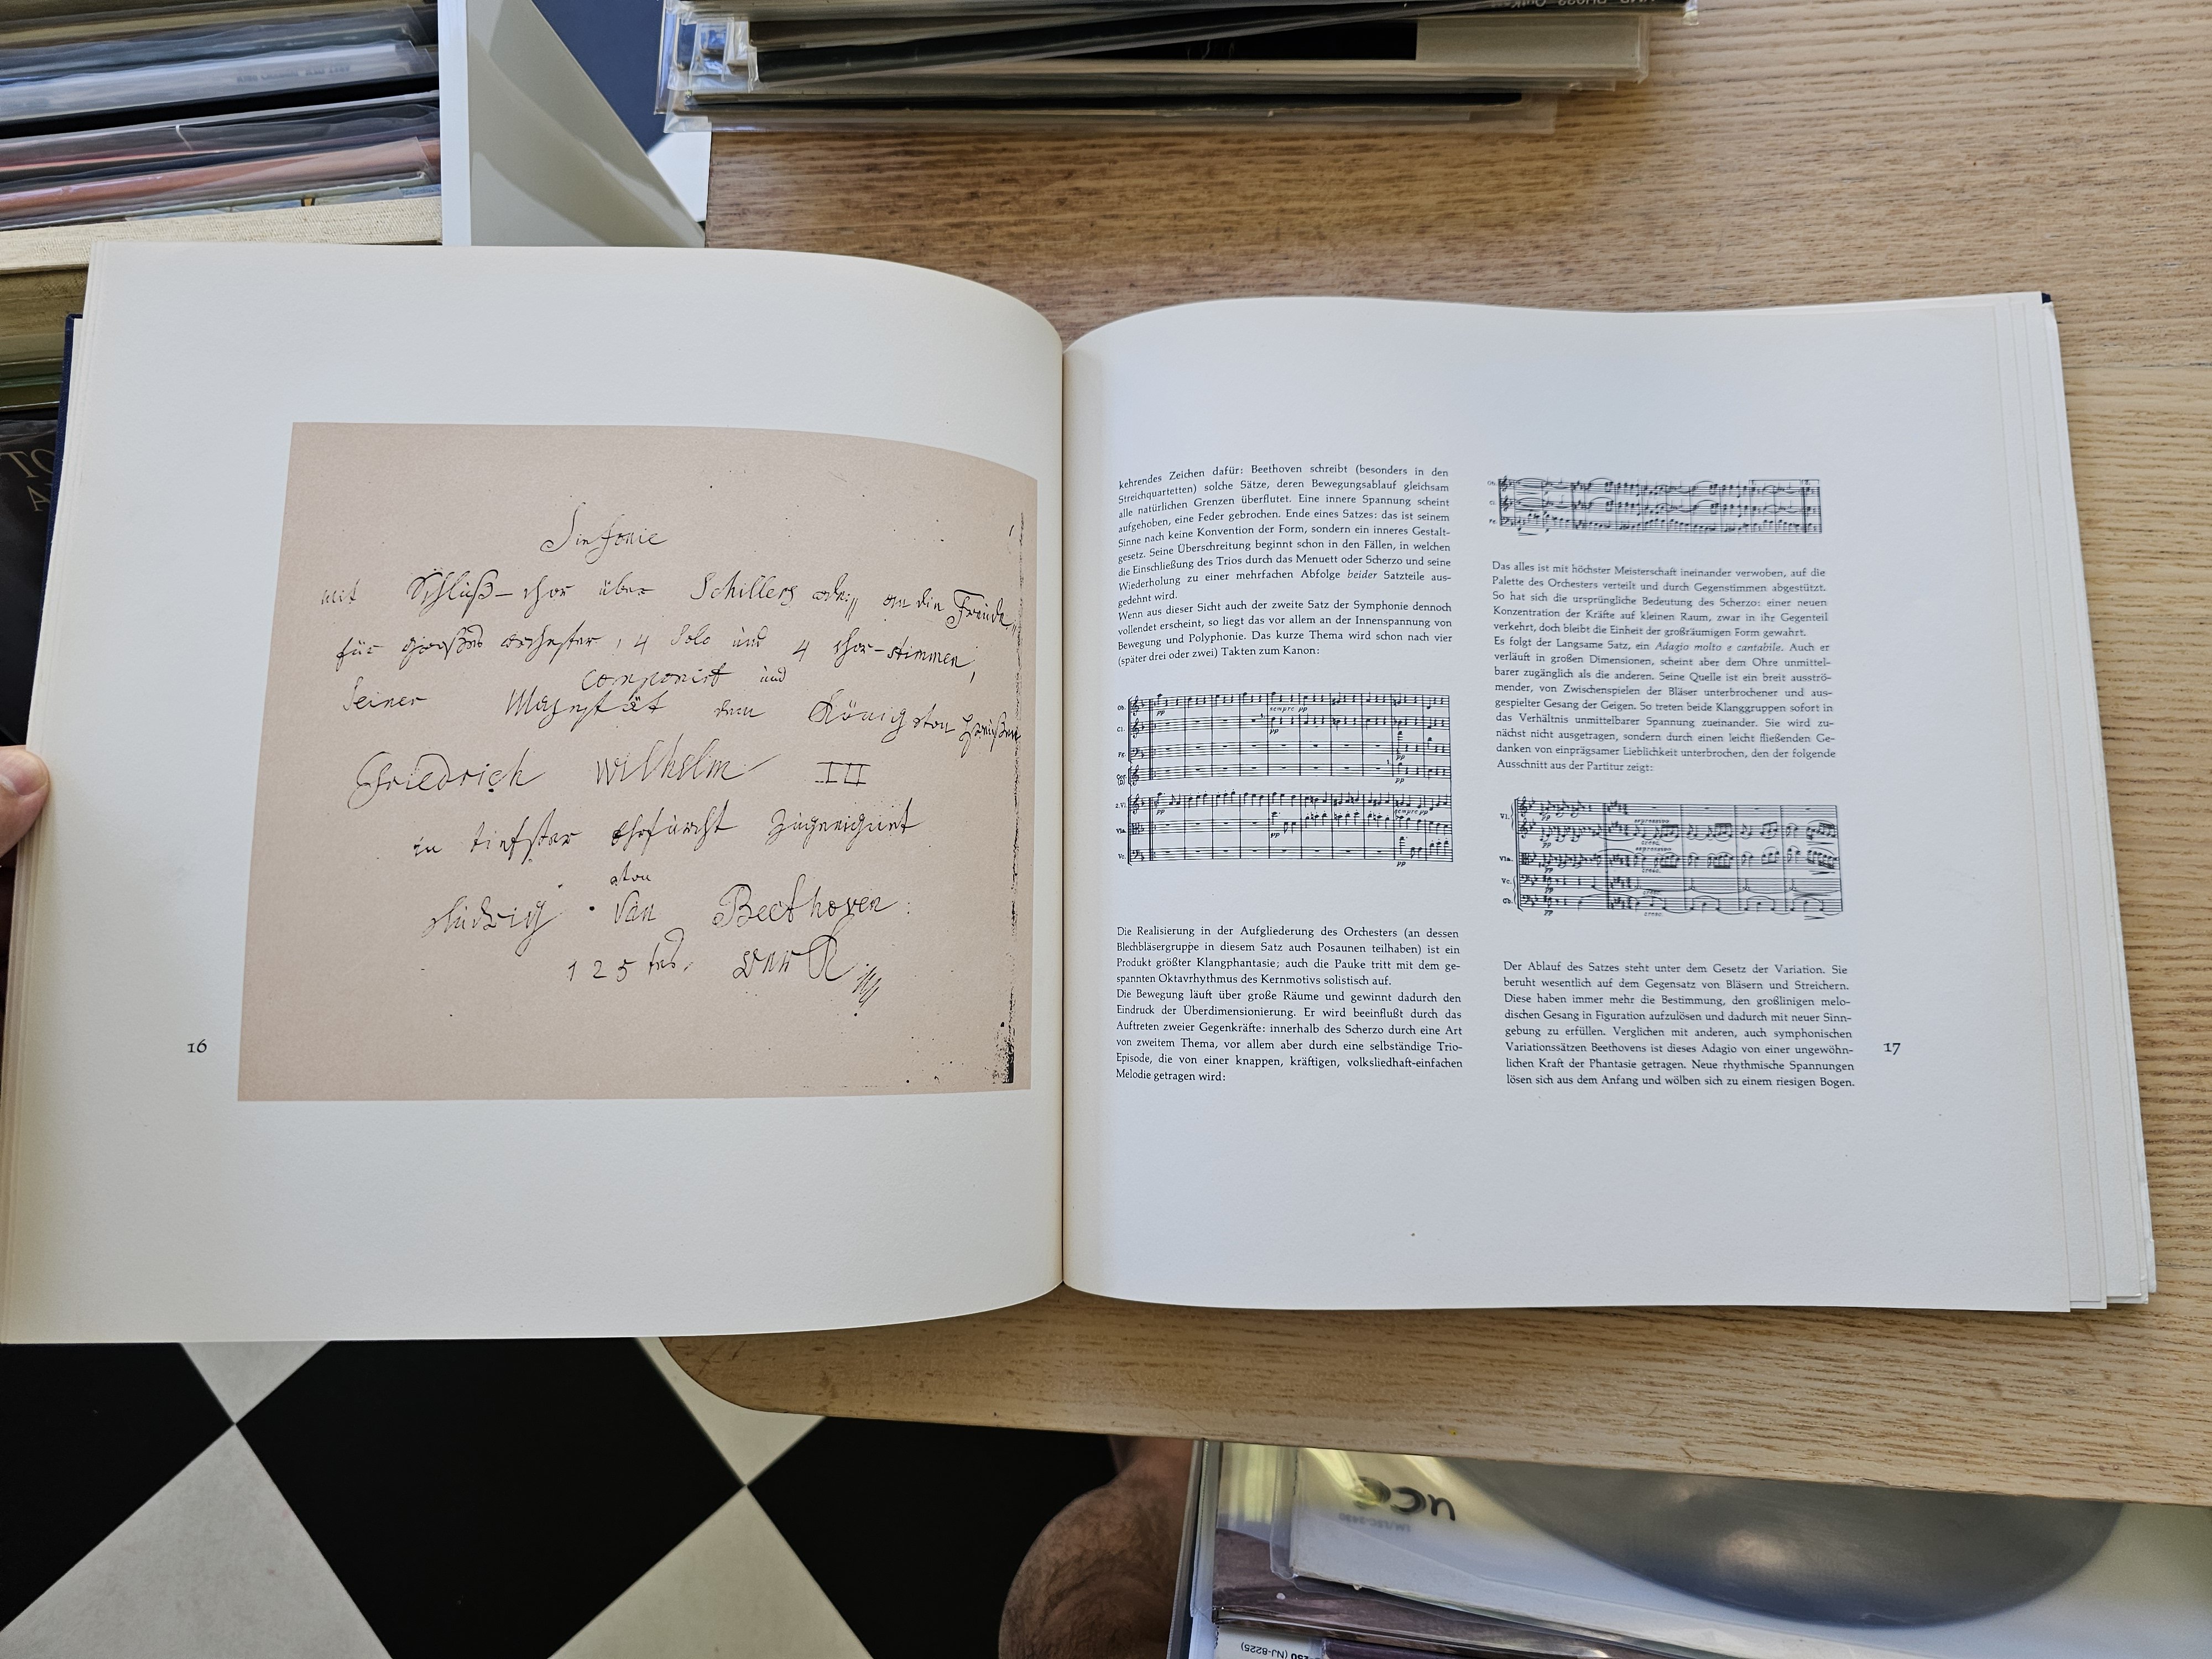 Sinfonie
mit Schluß-chor über Schillers ode: „an die Freude„
für großes orchester, 4 Solo und 4 chor-stimmen,
componirt und
Seiner Majestät dem König von Preußen
Friedrich Wilhelm III
in tiefster Ehrfurcht zugeeignet
von
Ludwig van Beethoven
125tes Werk
16
kehrendes Zeichen dafür: Beethoven schreibt (besonders in den
Streichquartetten) solche Sätze, deren Bewegungsablauf gleichsam
alle natürlichen Grenzen überflutet. Eine innere Spannung scheint
aufgehoben, eine Feder gebrochen. Ende eines Satzes: das ist seinem
Sinne nach keine Konvention der Form, sondern ein inneres Gestalt-
gesetz. Seine Überschreitung beginnt schon in den Fällen, in welchen
die Einschließung des Trios durch das Menuett oder Scherzo und seine
Wiederholung zu einer mehrfachen Abfolge beider Satzteile aus-
gedehnt wird.
Wenn aus dieser Sicht auch der zweite Satz der Symphonie dennoch
vollendet erscheint, so liegt das vor allem an der Innenspannung von
Bewegung und Polyphonie. Das kurze Thema wird schon nach vier
(später drei oder zwei) Takten zum Kanon:
Ob.
pp
sempre pp
Cl.
pp
Fg.
pp
Cor.
(D)
pp
2.Vl.
pp
sempre pp
Vla.
pp
Vc.
pp
Die Realisierung in der Aufgliederung des Orchesters (an dessen
Blechbläsergruppe in diesem Satz auch Posaunen teilhaben) ist ein
Produkt größter Klangphantasie; auch die Pauke tritt mit dem ge-
spannten Oktavrhythmus des Kernmotivs solistisch auf.
Die Bewegung läuft über große Räume und gewinnt dadurch den
Eindruck der Überdimensionierung. Er wird beeinflußt durch das
Auftreten zweier Gegenkräfte: innerhalb des Scherzo durch eine Art
von zweitem Thema, vor allem aber durch eine selbständige Trio-
Episode, die von einer knappen, kräftigen, volksliedhaft-einfachen
Melodie getragen wird:
Ob.
Cl.
Fg.
Das alles ist mit höchster Meisterschaft ineinander verwoben, auf die
Palette des Orchesters verteilt und durch Gegenstimmen abgestützt.
So hat sich die ursprüngliche Bedeutung des Scherzo: einer neuen
Konzentration der Kräfte auf kleinen Raum, zwar in ihr Gegenteil
verkehrt, doch bleibt die Einheit der großräumigen Form gewahrt.
Es folgt der Langsame Satz, ein Adagio molto e cantabile. Auch er
verläuft in großen Dimensionen, scheint aber dem Ohre unmittel-
barer zugänglich als die anderen. Seine Quelle ist ein breit ausströ-
mender, von Zwischenspielen der Bläser unterbrochener und aus-
gespielter Gesang der Geigen. So treten beide Klanggruppen sofort in
das Verhältnis unmittelbarer Spannung zueinander. Sie wird zu-
nächst nicht ausgetragen, sondern durch einen leicht fließenden Ge-
danken von einprägsamer Lieblichkeit unterbrochen, den der folgende
Ausschnitt aus der Partitur zeigt:
Vl.
espressivo
pp
cresc.
Vla.
espressivo
pp
cresc.
Vc.
pp
cresc.
Cb.
pp
cresc.
Der Ablauf des Satzes steht unter dem Gesetz der Variation. Sie
beruht wesentlich auf dem Gegensatz von Bläsern und Streichern.
Diese haben immer mehr die Bestimmung, den großlinigen melo-
dischen Gesang in Figuration aufzulösen und dadurch mit neuer Sinn-
gebung zu erfüllen. Verglichen mit anderen, auch symphonischen
Variationssätzen Beethovens ist dieses Adagio von einer ungewöhn-
lichen Kraft der Phantasie getragen. Neue rhythmische Spannungen
lösen sich aus dem Anfang und wölben sich zu einem riesigen Bogen.
17
(NJ-8225)